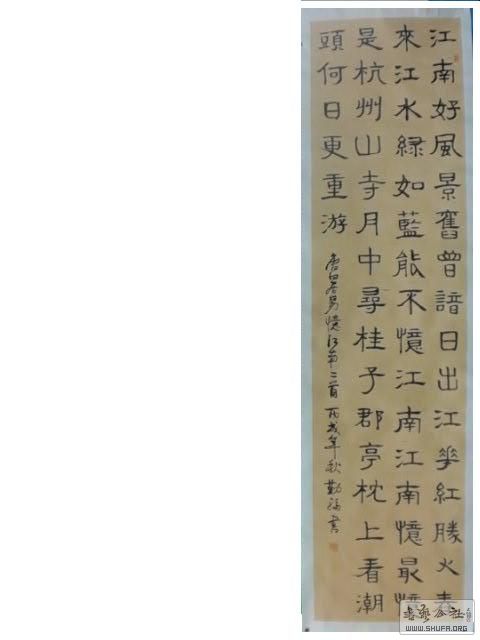 江南好風景舊曾諳日出江華紅勝火春
來江水緑如藍能不憶江南江南憶最憶
是杭州山寺月中尋桂子郡亭枕上看潮
頭何日更重游
唐白居易憶江南二首丙戌年秋勤福書
书艺公社
WWW.SHUFA.ORG